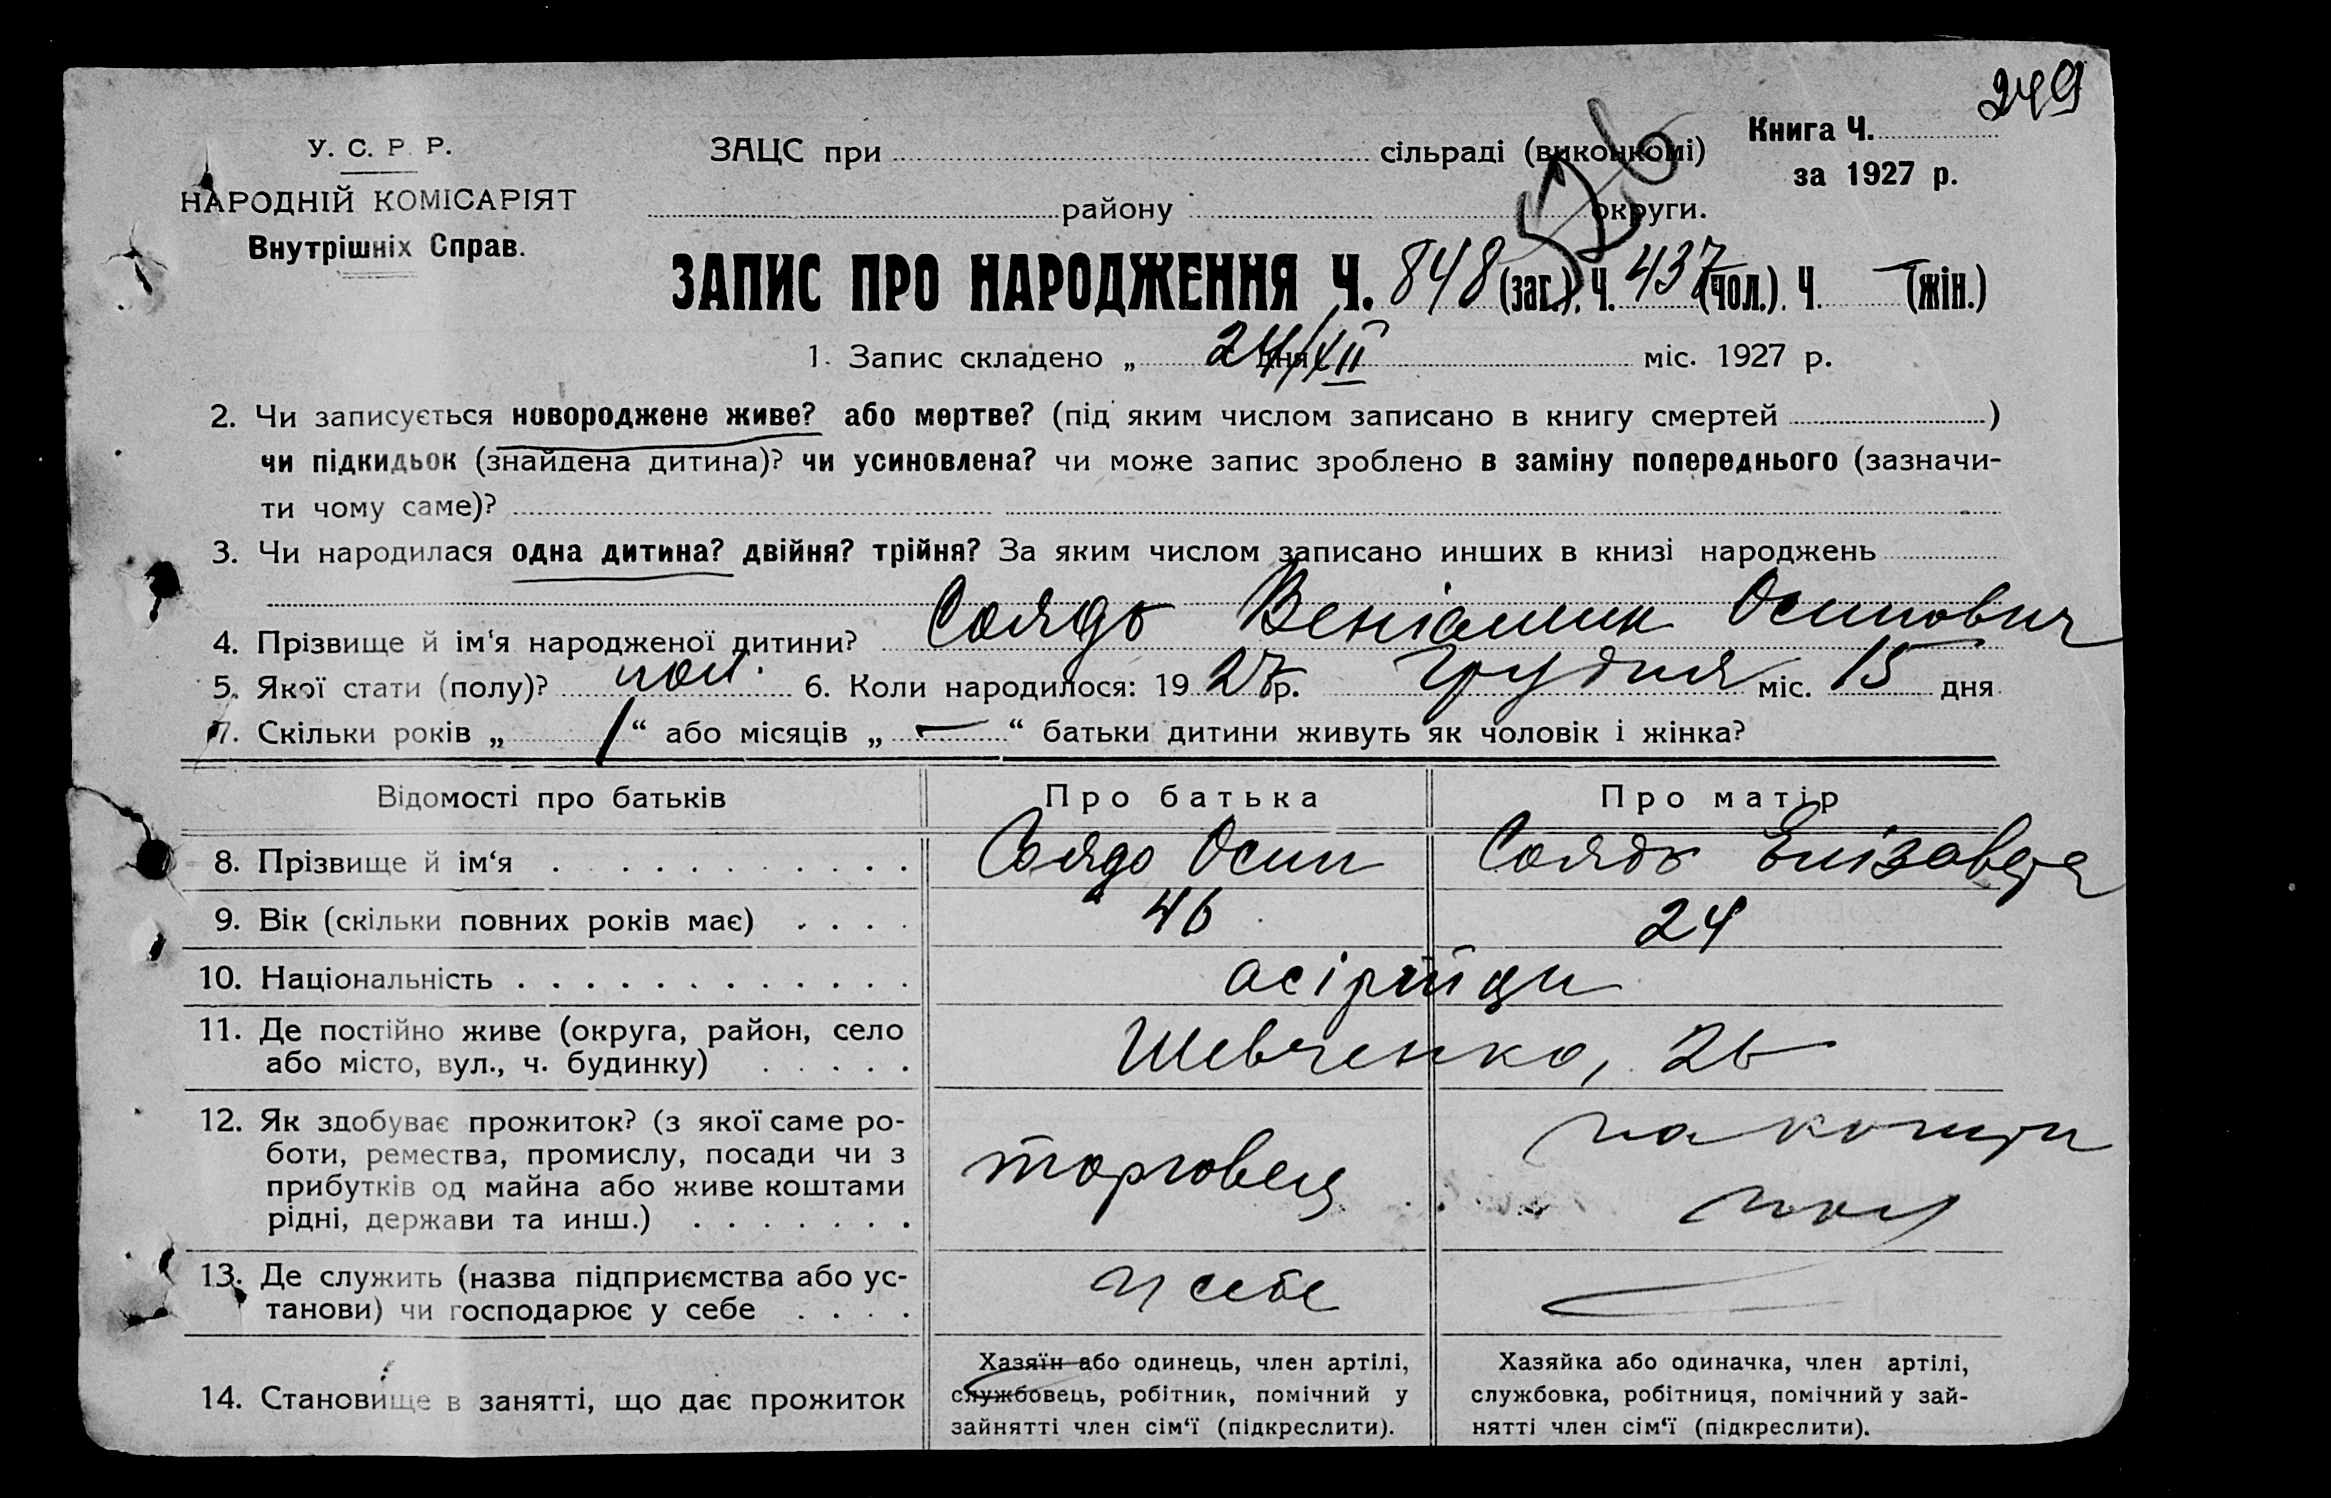 249
У. С. Р. Р.
НАРОДНІЙ КОМІСАРІЯТ
Внутрішніх Справ.
ЗАЦС при сільраді (виконкомі)
району округи.
Книга Ч.
за 1927 р.
ЗАПИС ПРО НАРОДЖЕННЯ Ч. 848 (заг.), Ч. 437 (чол.). Ч. — (жін.)
1. Запис складено „ 24/XII дня міс. 1927 р.
2. Чи записується новороджене живе? або мертве? (під яким числом записано в книгу смертей )
чи підкидьок (знайдена дитина)? чи усиновлена? чи може запис зроблено в заміну попереднього (зазначи-
ти чому саме)?
3. Чи народилася одна дитина? двійня? трійня? За яким числом записано инших в книзі народжень
4. Прізвище й ім‘я народженої дитини? Соядо Веніамин Осипович
5. Якої стати (полу)? чол. 6. Коли народилося: 1927 р. Грудня міс. 15 дня
7. Скільки років „ 1 “ або місяців „ — “ батьки дитини живуть як чоловік і жінка?
Відомості про батьків Про батька Про матір
8. Прізвище й ім‘я Соядо Осип Соядо Елізавета
9. Вік (скільки повних років має) 46 24
10. Національність асірийци
11. Де постійно живе (округа, район, село
або місто, вул., ч. будинку) Шевченко, 26
12. Як здобуває прожиток? (з якої саме ро-
боти, ремества, промислу, посади чи з
прибутків од майна або живе коштами
рідні, держави та инш.) торговець на кошти чол
13. Де служить (назва підприємства або ус-
танови) чи господарює у себе у себе —
14. Становище в занятті, що дає прожиток
Хазяїн або одинець, член артілі,
службовець, робітник, помічний у
зайнятті член сім‘ї (підкреслити).
Хазяйка або одиначка, член артілі,
службовка, робітниця, помічний у зай-
нятті член сім‘ї (підкреслити).